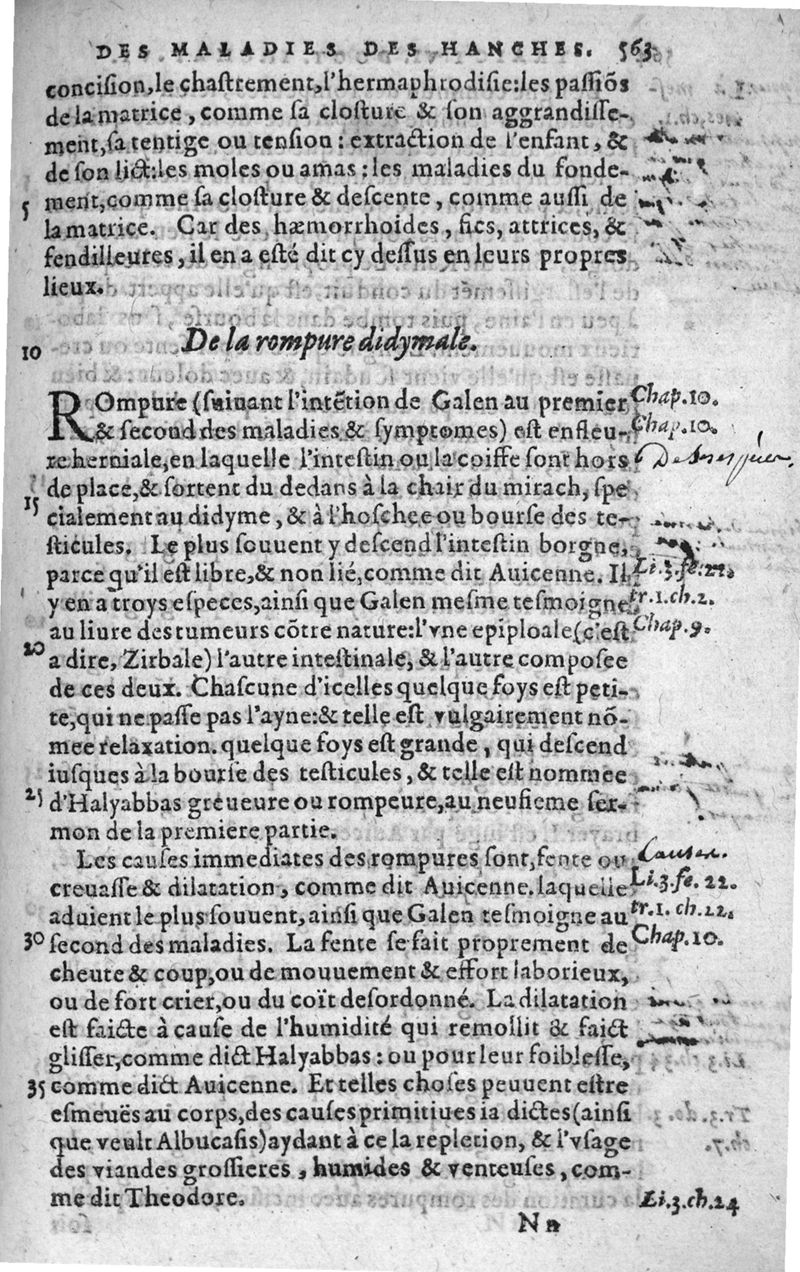 DES MALADIES DES HANCHES. 563
concision, le chastrement, l'hermaphrodisie: les passiõs
de la matrice, comme sa closture & son aggrandisse-
ment, sa tentige ou tension: extraction de l'enfant, &
de son lict: les moles ou amas: les maladies du fonde-
5 ment, comme sa closture & descente, comme aussi de
la matrice. Car des hæmorrhoides, fics, attrices, &
fendilleures, il en a esté dit cy dessus en leurs propres
lieux.
10 De la rompure didymale.
ROmpure (suivant l'intẽtion de Galen au premier Chap.10.
& second des maladies & symptomes) est enfleu- Chap.10.
re herniale, en laquelle l'intestin ou la coiffe sont hors
de place, & sortent du dedans à la chair du mirach, spe
15 cialement au didyme, & à l'hoschee ou bourse des te-
sticules. Le plus souuent y descend l'intestin borgne,
parce qu'il est libre, & non lié, comme dit Auicenne. Il Li.3.fe.22.
y en a troys especes, ainsi que Galen mesme tesmoigne tr.1.ch.2.
au liure des tumeurs cõtre nature: l'vne epiploale (c'est Chap.9.
20 a dire, Zirbale) l'autre intestinale, & l'autre composee
de ces deux. Chascune d'icelles quelque foys est peti-
te, qui ne passe pas l'ayne: & telle est vulgairement nõ-
mee relaxation. quelque foys est grande, qui descend
iusques à la bourse des testicules, & telle est nommee
25 d'Halyabbas greueure ou rompeure, au neufieme ser-
mon de la premiere partie.
Les causes immediates des rompures sont, fente ou Causes.
creuasse & dilatation, comme dit Auicenne. laquelle Li.3.fe.22.
aduient le plus souuent, ainsi que Galen tesmoigne au tr.1.ch.22.
30 second des maladies. La fente se fait proprement de Chap.10.
cheute & coup, ou de mouuement & effort laborieux,
ou de fort crier, ou du coït desordonné. La dilatation
est faicte à cause de l'humidité qui remollit & faict
glisser, comme dict Halyabbas: ou pour leur foiblesse,
35 comme dict Auicenne. Et telles choses peuuent estre
esmeuës au corps, des causes primitiues ia dictes (ainsi
que veult Albucasis) aydant à ce la repletion, & l'vsage
des viandes grossieres, humides & venteuses, com-
me dit Theodore. Li.3.ch.24
Nn